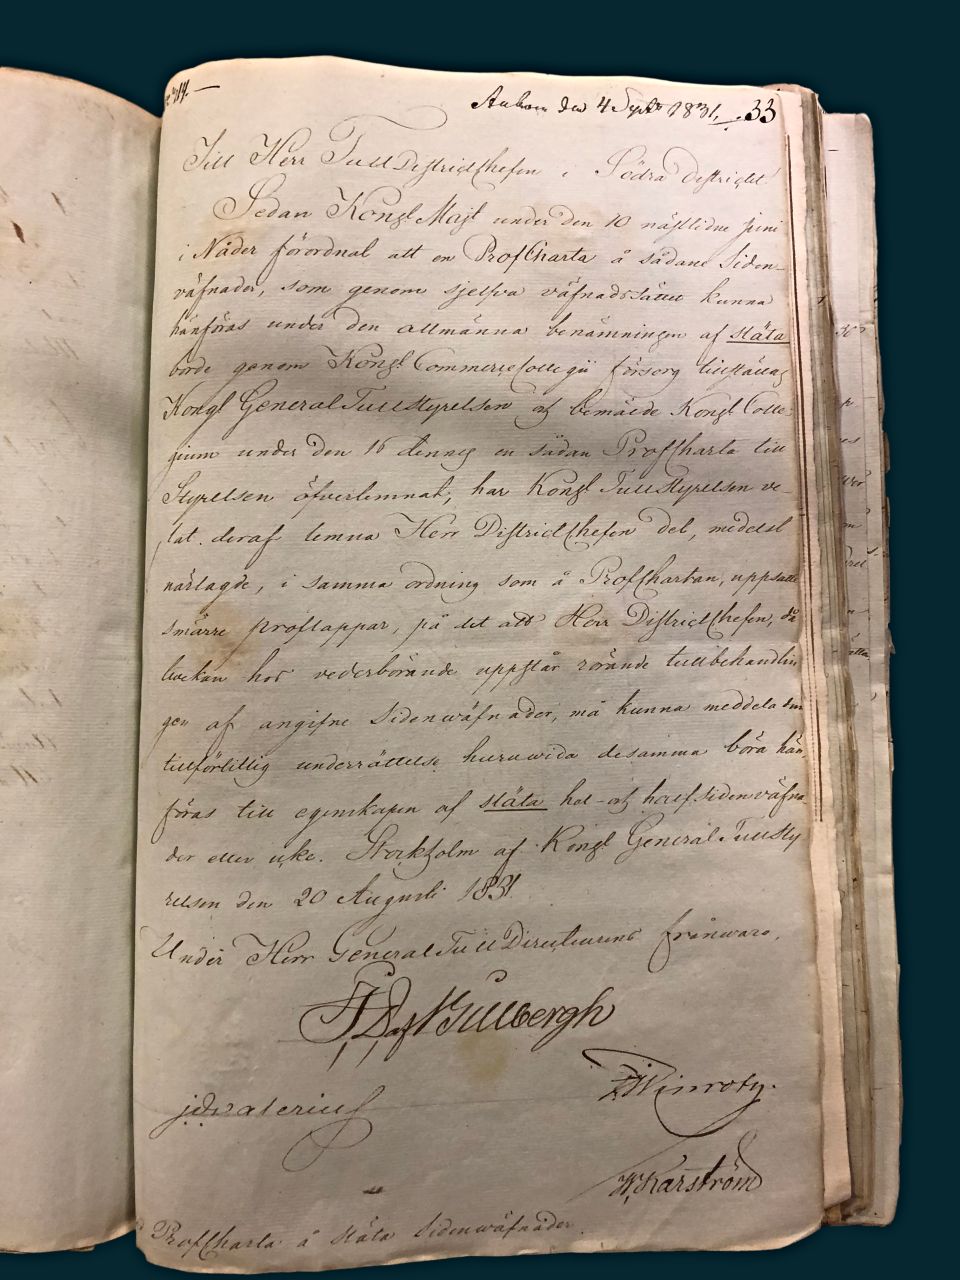 Ankom den 4 Sept 1831. 33
Till Herr TullDistrictChefen i Södra districtet!
Sedan Kongl Majt under den 10 näστlidne Juni
i Nåder förordnat att en ProfCharta å sådane Siden-
väfnader, som genom sjelfva väfnadssättet kunna
hänföras under den allmänna benämningen af släta
borde genom Kongl CommerceCollegii försorg tillställas
Kongl GeneralTullStyrelsen och bemälde Kongl Colle-
gium under den 16 dennes en sådan ProfCharta till
Styrelsen öfverlemnat; har Kongl TullStyrelsen ve-
lat deraf lemna Herr DistrictChefen del, medelst
närlagde, i samma ordning som å ProfChartan, uppsatte
smärre proflappar, på det att Herr DistrictChefen, då
tvekan hos vederbörande uppstår rörande tullbehandlin
gen af angifne Sidenwäfnader, må kunna meddela en
tillförlitlig underrättelse huruwida desamma böra hän-
föras till egenskapen af släta hel- och halfSidenväfna-
der eller icke. Stockholm af Kongl General TullSty
relsen den 20 Augusti 1831.
Under Herr GeneralTullDirecteurens frånwaro.
Gillbergh
JDValerius
Winroth
Karström
ProfCharta å släta Sidenwäfnader.